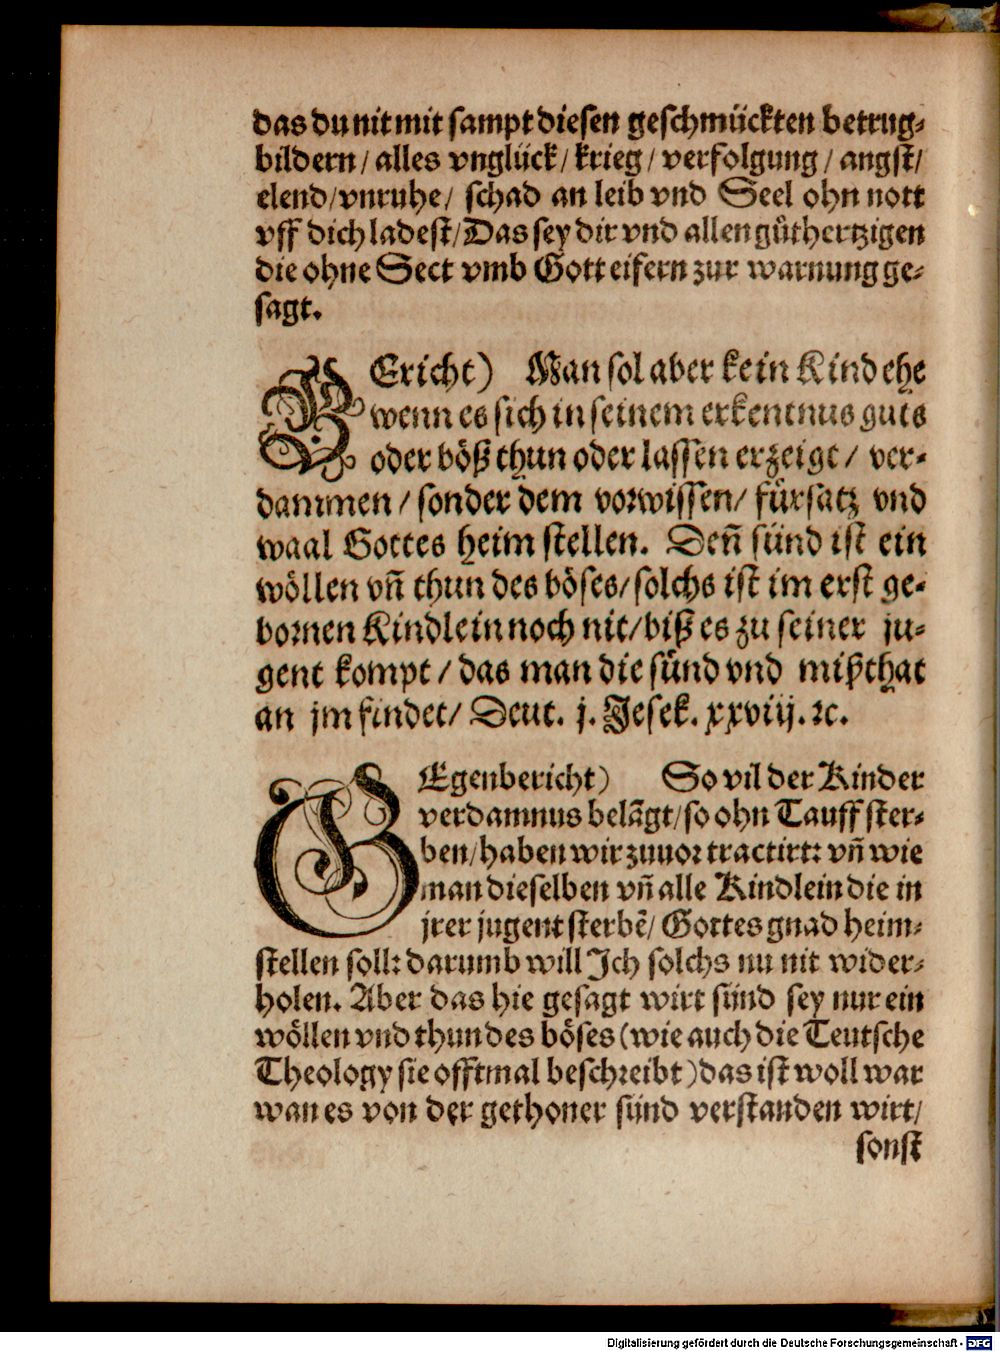 das du nit mit sampt diesen geschmückten betrug⸗
bildern/ alles vnglück/ krieg/ verfolgung/ angst/
elend/ vnruhe/ schad an leib vnd Seel ohn nott
vff dich ladest/ Das sey dir vnd allen gůthertzigen
die ohne Sect vmb Gott eifern zur warnung ge⸗
sagt.
BEricht) Man sol aber kein Kind ehe
wenn es sich in seinem erkentnus guts
oder böß thun oder lassen erzeigt/ ver⸗
dammen/ sonder dem vorwissen/ fürsatz vnd
waal Gottes heim stellen. Deñ sünd ist ein
wöllen vñ thun des böses/ solchs ist im erst ge⸗
bornen Kindlein noch nit/ biß es zu seiner ju⸗
gent kompt/ das man die sünd vnd mißthat
an jm findet/ Deut. j. Jesek. xxviij. ꝛc.
GEgenbericht) So vil der Kinder
verdamnus belãgt/ so ohn Tauff ster⸗
ben/ haben wir zuuor tractirt: vñ wie
man dieselben vñ alle Kindlein die in
jrer jugent sterbẽ/ Gottes gnad heim⸗
stellen soll: darumb will Ich solchs nu nit wider⸗
holen. Aber das hie gesagt wirt sünd sey nur ein
wöllen vnd thun des böses (wie auch die Teutsche
Theology sie offtmal beschreibt) das ist woll war
wan es von der gethoner sünd verstanden wirt/
sonst
Digitalisierung gefördert durch die Deutsche Forschungsgemeinschaft - DFG